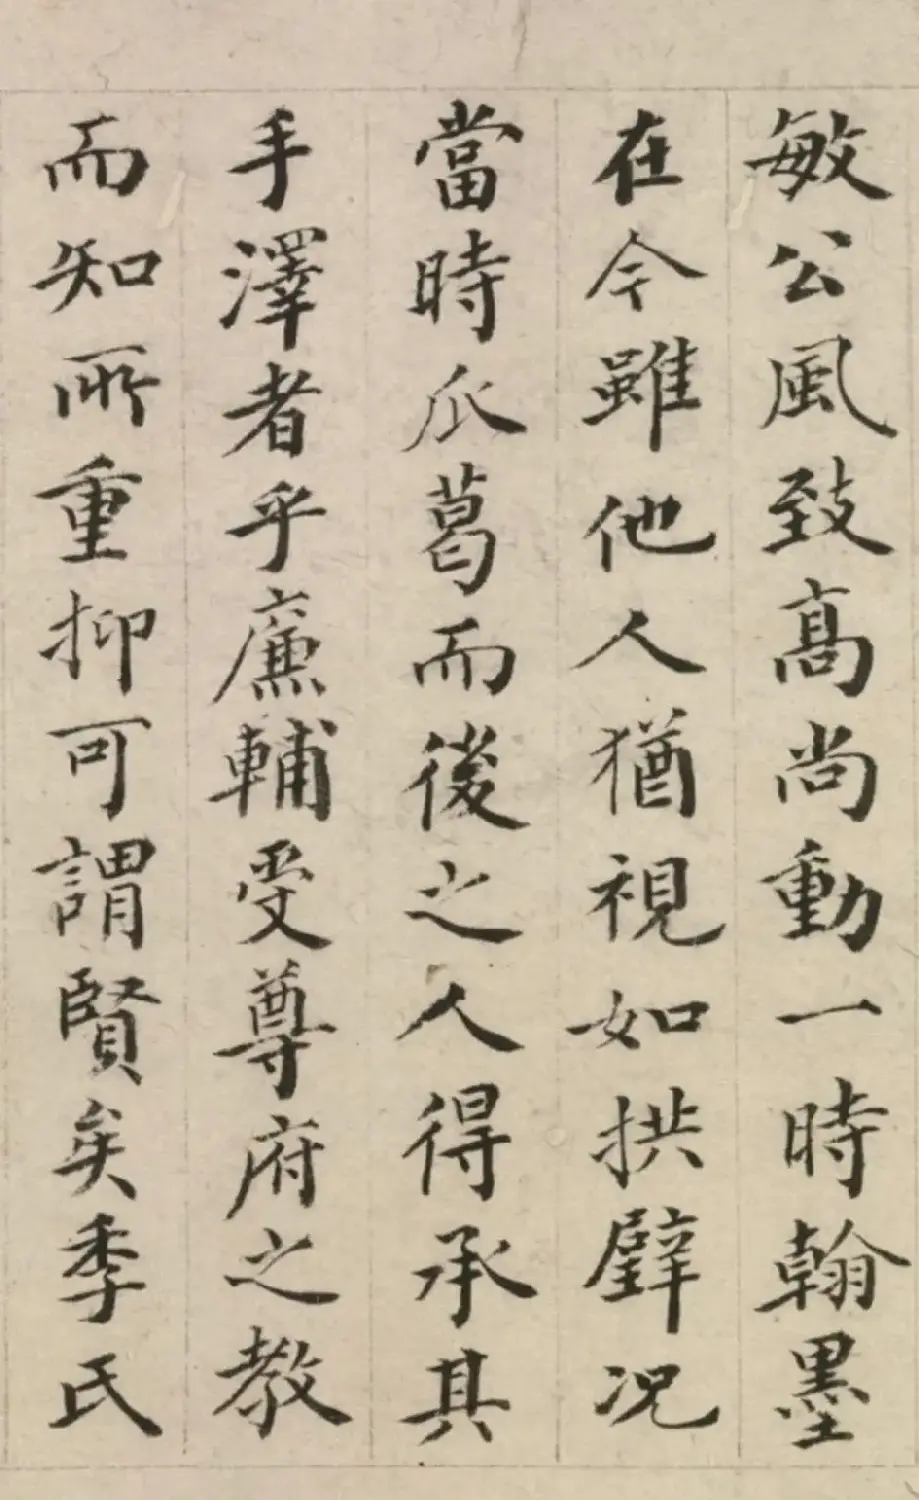 敏公風致高尚動一時翰墨
在今雖他人猶視如拱璧况
當時瓜葛而後之人得承其
手澤者乎廉輔受尊府之教
而知所重抑可謂賢矣季氏